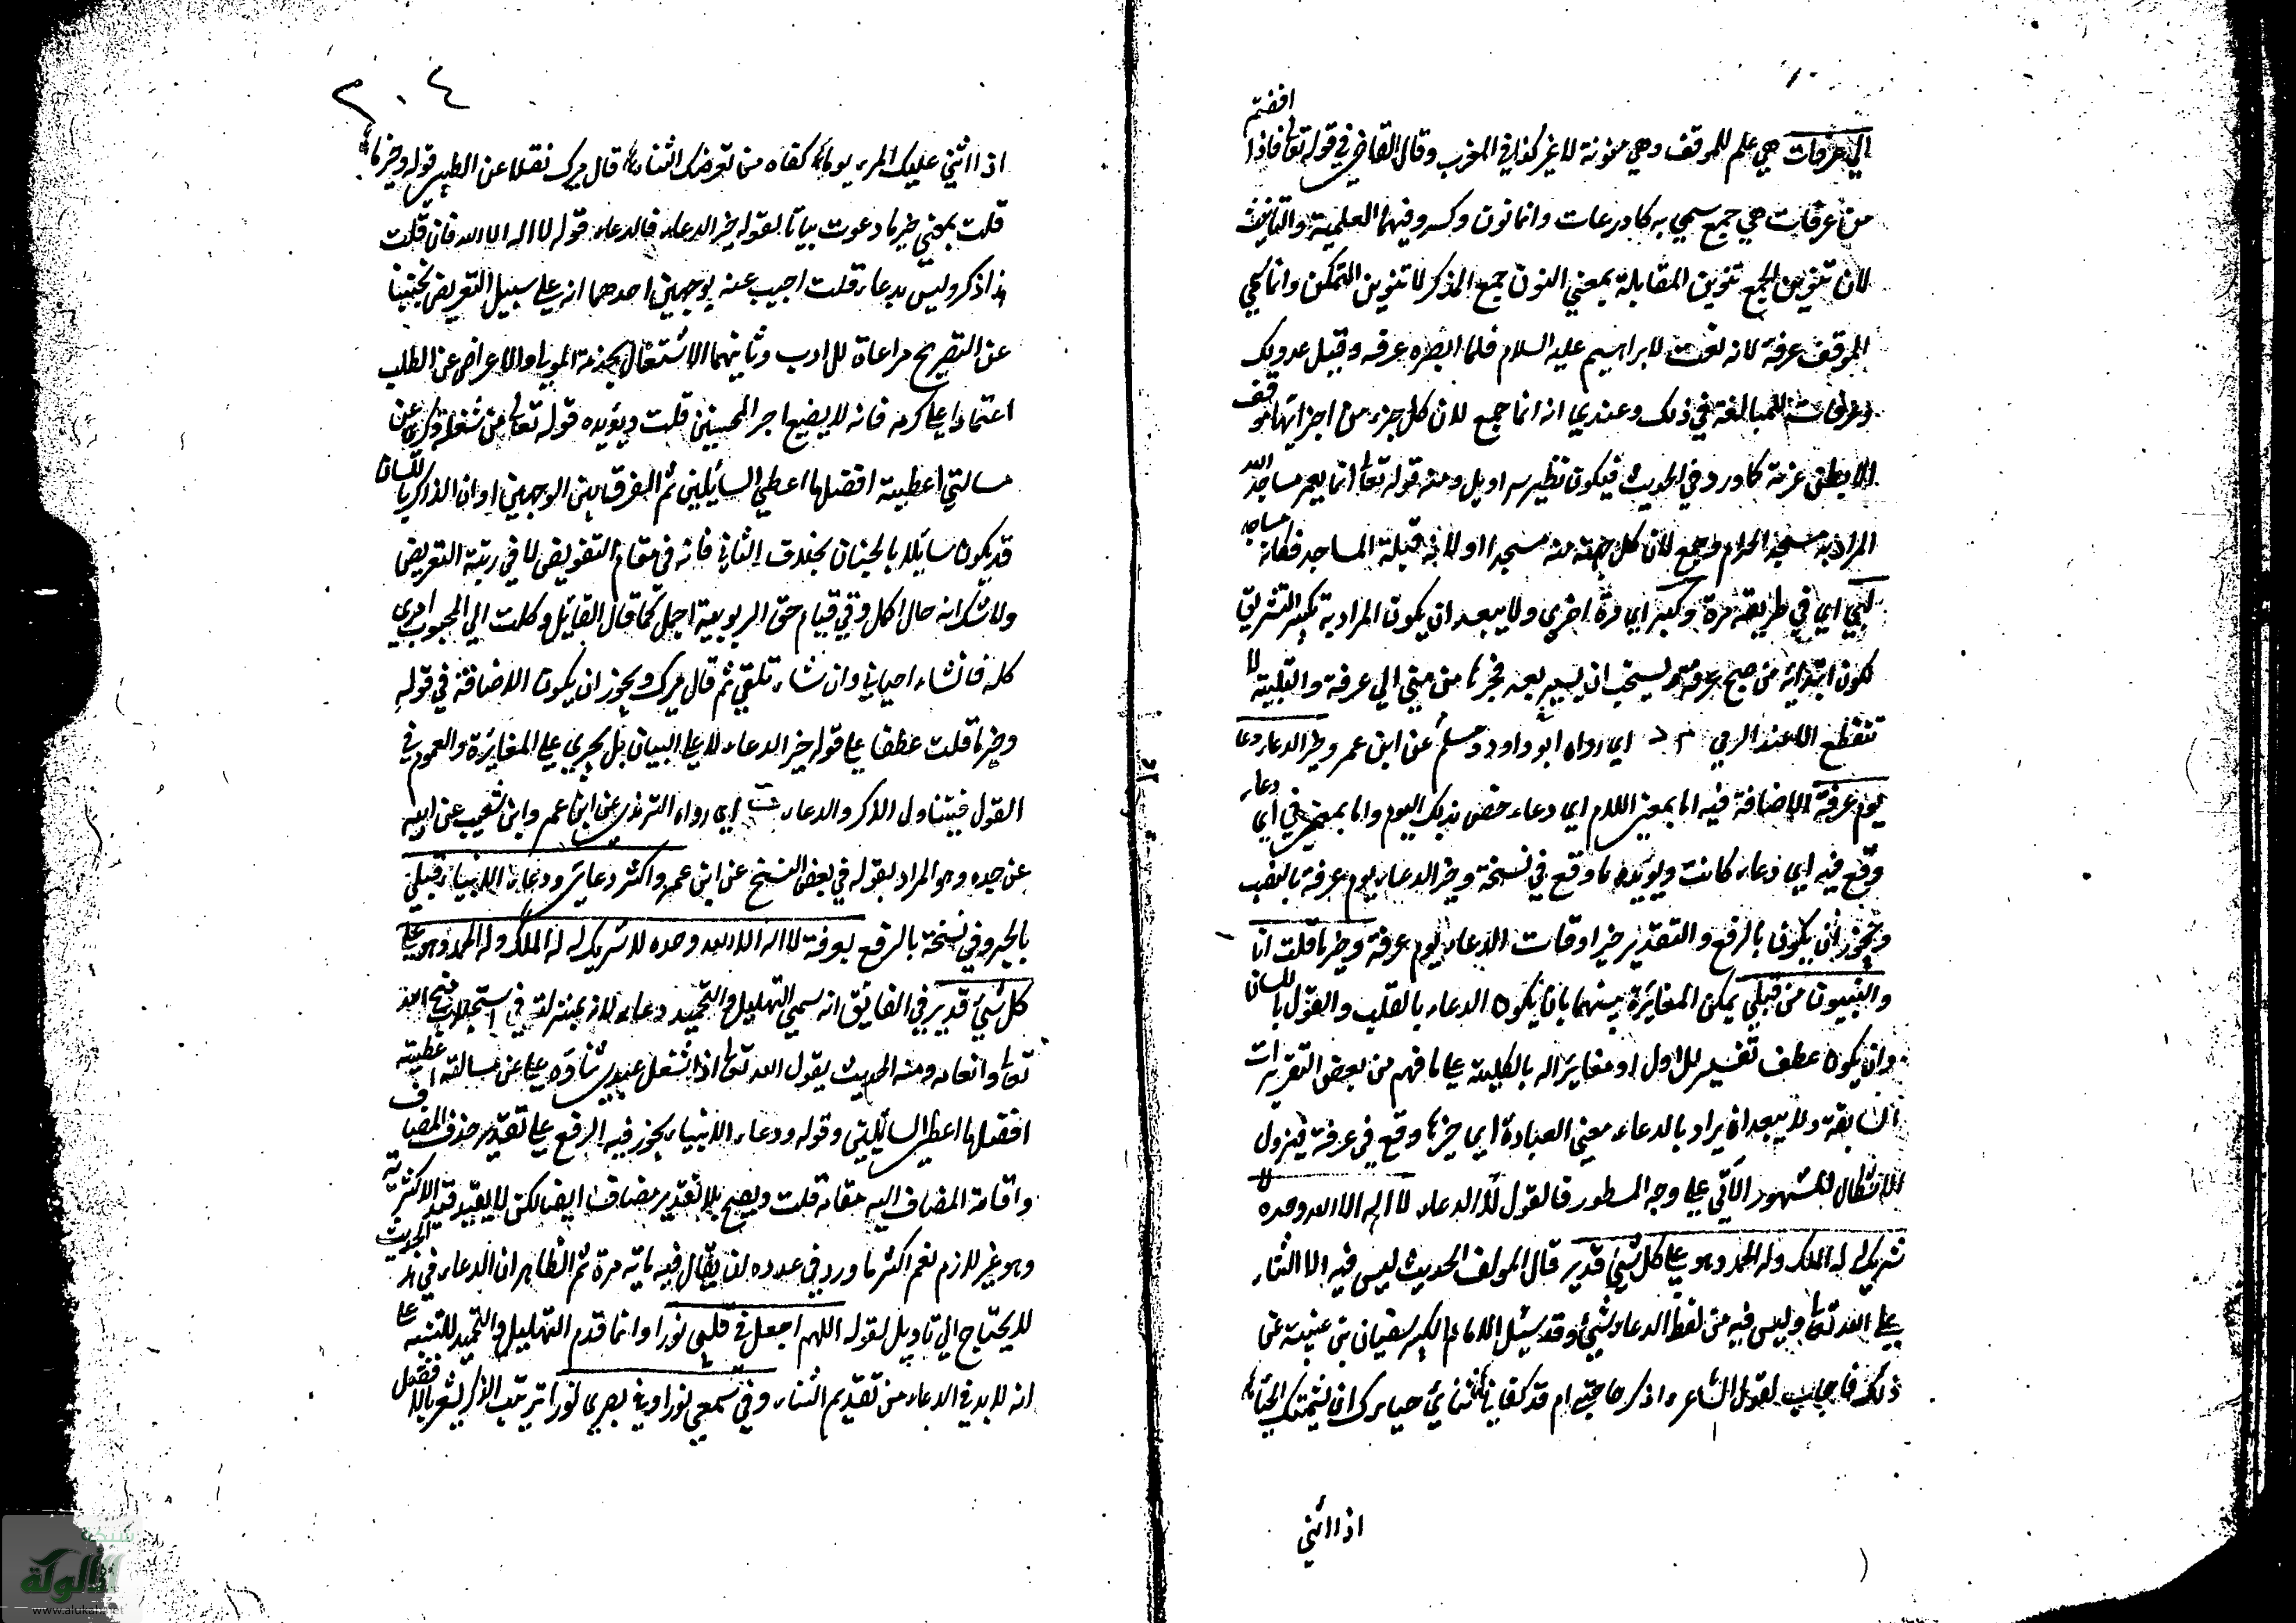 افضتم
الي عرفات هي علم للموقف وهي منونة لا غير كذا في المغرب وقال القاضي في قوله تعالى فاذا
من عرفات هي جمع سمي به كاذرعات وانما نون وكسر وفيها العلمية والتأنيث
لان تنوين الجمع تنوين المقابلة بمعني النون جمع المذكر لا تنوين التمكن وانما سمي
الموقف عرفة لانه نعت لابراهيم عليه السلام فلما ابصره عرفه وقيل غير ذلك
وعرفات للمبالغة في ذلك وعندي انه انما جمع لان كل جزء من اجزائها موقف
الا بطن عرنة كما ورد في الحديث فيكون نظير سراويل ومنه قوله تعالى انما يعمر مساجد الله
المراد به مسجد الحرام وجمع لان كل جهة منه مسجد او لانه قبلة المساجد فكانه مساجد
لبي اي في طريقه مرة وكبر اي مرة اخري ولا يبعد ان يكون المراد به تكبير التشريق
لكون ابتدائه من صبح عرفة يستحب ان يسير بعد فجرها من مني الي عرفة والتلبية لا
تنقطع الا عند الرمي م د اي رواه ابو داود ومسلم عن ابن عمر وخير الدعاء دعاء
يوم عرفة الاضافة فيه اما بمعني اللام اي دعاء خص بذلك اليوم واما بمعني في اي دعاء
وقع فيه اي دعاء كانت ويؤيده ما وقع في نسخة وخير الدعاء يوم عرفة بالنصب
ويجوز ان يكون بالرفع والتقدير خير اوقات الدعاء يوم عرفة وخير ما قلت انا
والنبيون من قبلي يمكن المغايرة بينهما بان يكون الدعاء بالقلب والقول باللسان
وان يكون عطف تفسير للاول او مغايرا له بالكلية علي ما فهم من بعض التقريرات
السابقة ولا يبعد ان يراد بالدعاء معني العبادة اي خير ما وقع في عرفة فيزول
الاشكال المشهور الآتي علي وجه المسطور فالقول لا الدعاء لا اله الا الله وحده لا
شريك له له الملك وله الحمد وهو علي كل شيء قدير قال المولف الحديث ليس فيه الا الثناء
علي الله تعالى وليس فيه من لفظ الدعاء شيء وقد سئل الامام الكبير سفيان بن عيينة عن
ذلك فاجاب لقول الشاعر ءاذكر حاجتي ام قد كفاني ثنائي حياءك ان شيمتك الحياء
اذا اثني
٢٠٤
اذا اثني عليك المرء يوما كفاه من تعرضك الثناء قال ميرك نقلا عن الطيبي قوله وخير ما
قلت بمعني خير ما دعوت بيانا لقوله خير الدعاء فالدعاء قوله لا اله الا الله فان قلت
هذا ذكر وليس بدعاء قلت اجيب عنه بوجهين احدهما انه علي سبيل التعريض تجنبا
عن التصريح مراعاة للادب وثانيهما الاشتغال بخدمة المولي والاعراض عن الطلب
اعتمادا علي كرمه فانه لا يضيع اجر المحسنين قلت ويؤيده قوله تعالى من شغله ذكري عن
مسالتي اعطيته افضل ما اعطي السائلين ثم الفرق بين الوجهين او ان الذاكر باللسان
قد يكون سائلا بالجنان بخلاف الثاني فانه في مقام التفويض لا في رتبة التعريض
ولا شك انه حال اكمل وفي قيام حق الربوبية اجمل كما قال القائل وكلت الي المحبوب امري
كله فان شاء احياني وان شاء تلفي ثم قال ميرك ويجوز ان يكون الاضافة في قوله
وخير ما قلت عطفا علي قوله خير الدعاء لا علي البيان بل يجري علي المغايرة والعموم في
القول فيتناول الذكر والدعاء ت اي رواه الترمذي عن ابن عمر وابن شعيب عن ابيه
عن جده وهو المراد بقوله في بعض النسخ عن ابن عمرو اكثر دعائي ودعاء الانبياء قبلي
بالجر وفي نسخة بالرفع بعرفة لا اله الا الله وحده لا شريك له له الملك وله الحمد وهو علي
كل شيء قدير في الفائق انه سمي التهليل والتحميد دعاء لانه بمنزلته في استجلاب فتح الله
تعالى وانعامه ومنه الحديث يقول الله تعالى اذا شغل عبدي ثناؤه علي عن مسالته اعطيته
افضل ما اعطي السائلين وقوله ودعاء الانبياء يجوز فيه الرفع علي تقدير حذف المضاف
واقامة المضاف اليه مقامه قلت ويصح بلا تقدير مضاف ايضا لكن لا يقيد قيد الاكثرية
وهو غير لازم نعم اكثر ما ورد في عدده ان يقال فيه مائة مرة ثم الظاهر ان الدعاء في هذا الحديث
لا يحتاج الي تاويل لقوله اللهم اجعل في قلبي نورا وانما قدم التهليل والتحميد للتنبيه علي
انه لا بد في الدعاء من تقديم الثناء وفي سمعي نورا وفي بصري نورا ترتيب الذكر يشعر بالافضل
شبكة
الألوكة
www.alukah.net